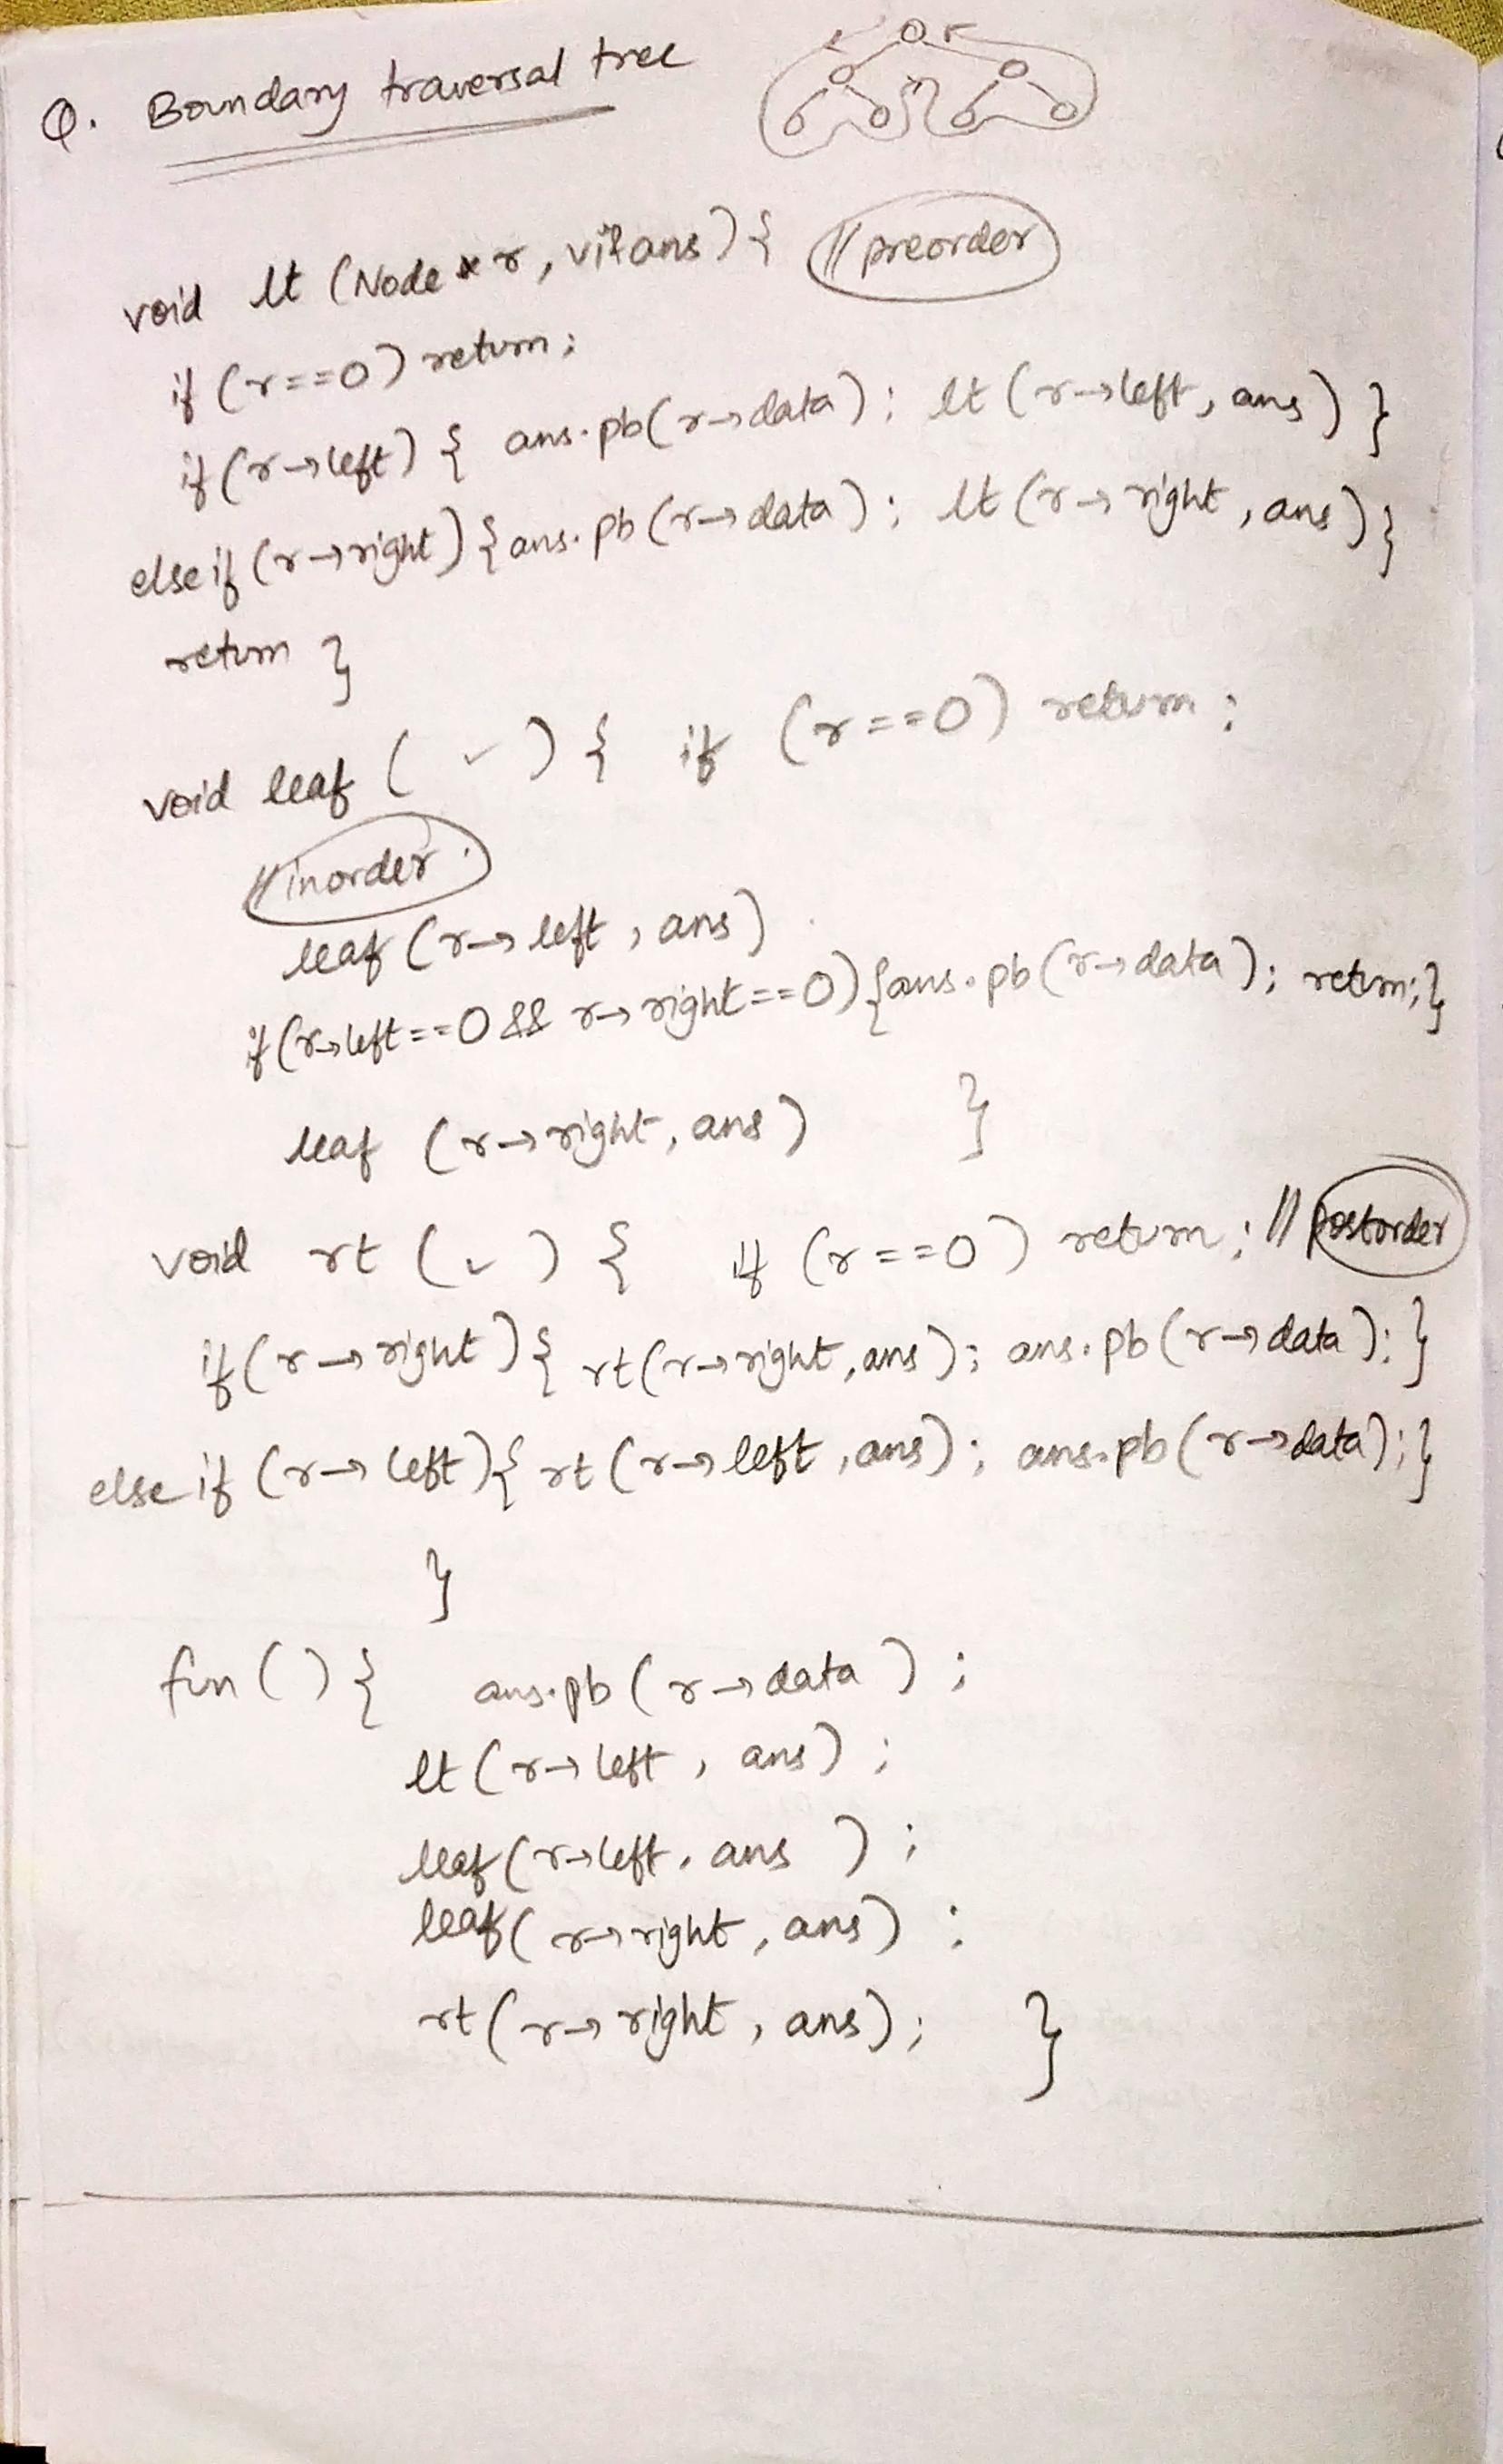 Q. Boundary traversal tree
void lt (Node * r, vi &ans) { // preorder
if (r==0) return;
if (r→left) { ans.pb(r→data); lt (r→left, ans) }
else if (r→right) { ans.pb (r→data); lt (r→right, ans) }
return }
void leaf ( ✓ ) { if (r==0) return;
// inorder.
leaf (r→left, ans)
if (r→left==0 && r→right==0) {ans.pb (r→data); return;}
leaf (r→right, ans) }
void rt ( ✓ ) { if (r==0) return; // postorder
if (r→right) { rt(r→right, ans); ans.pb (r→data); }
else if (r→left) { rt (r→left, ans); ans.pb (r→data); }
}
fun () { ans.pb (r→data);
lt (r→left, ans);
leaf (r→left, ans);
leaf (r→right, ans);
rt (r→right, ans); }